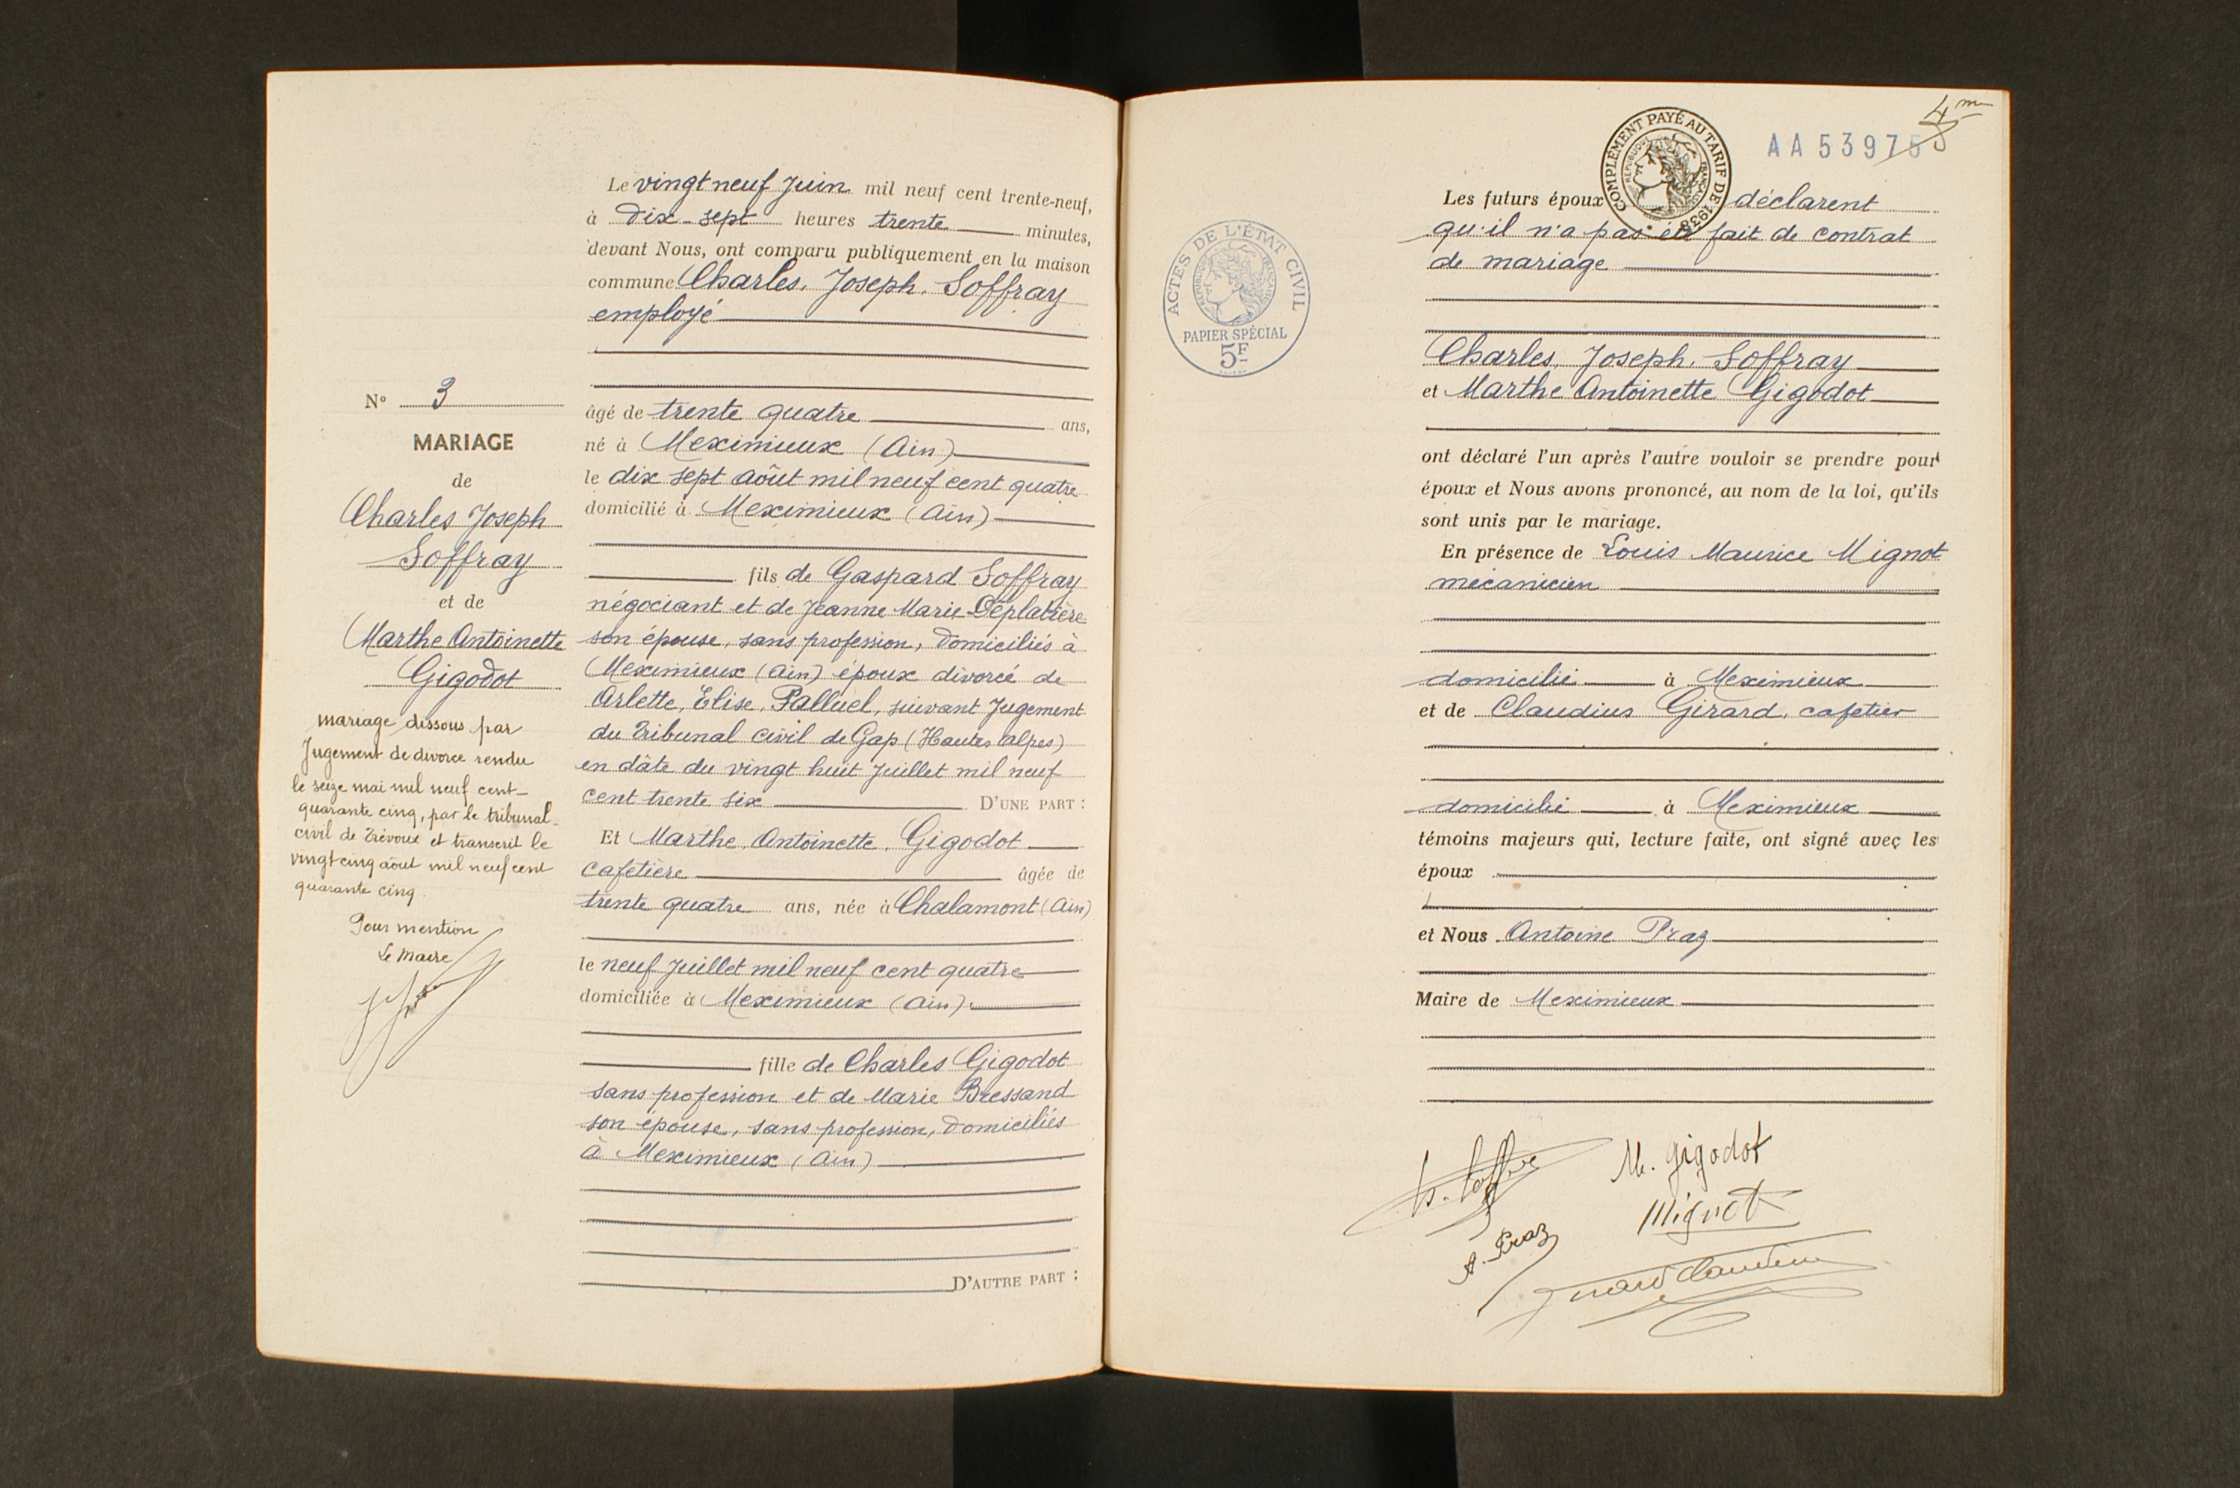 N° 3
MARIAGE
de
Charles Joseph
Soffray
et de
Marthe Antoinette
Gigodot
mariage dissous par
Jugement de divorce rendu
le seize mai mil neuf cent
quarante cinq, par le tribunal
civil de Trévoux et transcrit le
vingt cinq août mil neuf cent
quarante cinq.
Pour mention
Le Maire
Le vingt neuf Juin mil neuf cent trente-neuf,
à dix-sept heures trente minutes,
devant Nous, ont comparu publiquement en la maison
commune Charles, Joseph, Soffray
employé
âgé de trente quatre ans,
né à Meximieux (Ain)
le dix sept août mil neuf cent quatre
domicilié à Meximieux (Ain)
fils de Gaspard Soffray
négociant et de Jeanne Marie Déplatière
son épouse, sans profession, domiciliés à
Meximieux (Ain) époux divorcé de
Arlette, Elise, Palluel, suivant Jugement
du Tribunal civil de Gap (Hautes Alpes)
en dâte du vingt huit Juillet mil neuf
cent trente six D'UNE PART :
Et Marthe, Antoinette, Gigodot
cafetière âgée de
trente quatre ans, née à Chalamont (Ain)
le neuf Juillet mil neuf cent quatre
domiciliée à Meximieux (Ain)
fille de Charles Gigodot
sans profession et de Marie Bressand
son épouse, sans profession, domiciliés
à Meximieux (Ain)
D'AUTRE PART :
ACTES DE L'ÉTAT CIVIL
RÉPUBLIQUE FRANÇAISE
PAPIER SPÉCIAL
5F
COMPLÉMENT PAYÉ AU TARIF DE 1938
RÉPUBLIQUE FRANÇAISE
4
AA 53975
Les futurs époux déclarent
qu'il n'a pas été fait de contrat
de mariage
Charles, Joseph, Soffray
et Marthe Antoinette Gigodot
ont déclaré l'un après l'autre vouloir se prendre pour
époux et Nous avons prononcé, au nom de la loi, qu'ils
sont unis par le mariage.
En présence de Louis Maurice Mignot
mécanicien
domicilié à Meximieux
et de Claudius Girard, cafetier
domicilié à Meximieux
témoins majeurs qui, lecture faite, ont signé avec les
époux
et Nous Antoine Praz
Maire de Meximieux
M. Gigodot
Mignot
A. Praz